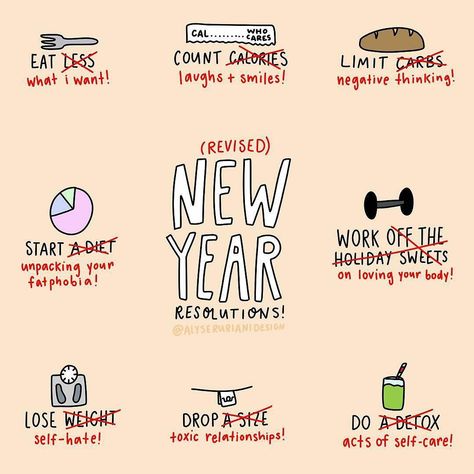 CAL........WHO CARES
EAT LESS
what i want!
COUNT CALORIES
laughs + smiles!
LIMIT CARBS
negative thinking!
(REVISED)
NEW
YEAR
RESOLUTIONS!
@ALYSERURIANIDESIGN
START A DIET
unpacking your
fatphobia!
WORK OFF THE
HOLIDAY SWEETS
on loving your body!
LOSE WEIGHT
self-hate!
DROP A SIZE
toxic relationships!
DO A DETOX
acts of self-care!